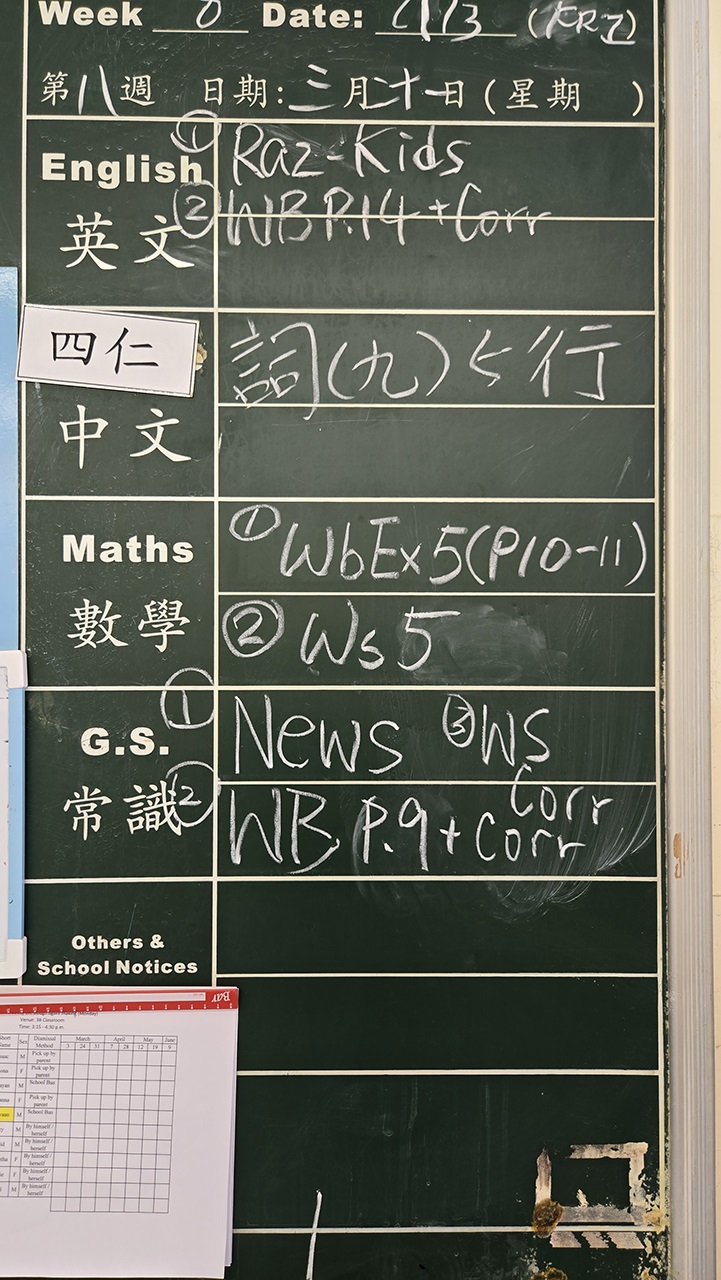 Week 8 Date: 21/3 (FRI)
第八週 日期:三月二十一日(星期 )
English 英文
① Raz-Kids
② WB P.14 + Corr
四仁
中文
詞(九)5行
Maths 數學
① WbEx 5(P10-11)
② Ws 5
G.S. 常識
① News ③ WS Corr
② WB P.9 + Corr
Others &
School Notices
Bay
Venue: 3B Classroom
Time: 2:15 - 4:30 p.m.
Sex Dismissal Method March April May June
3 24 31 7 28 12 19 9
M Pick up by parent
F Pick up by parent
M School Bus
F Pick up by parent
M School Bus
M By himself / herself
M By himself / herself
F By himself / herself
F By himself / herself
M By himself / herself